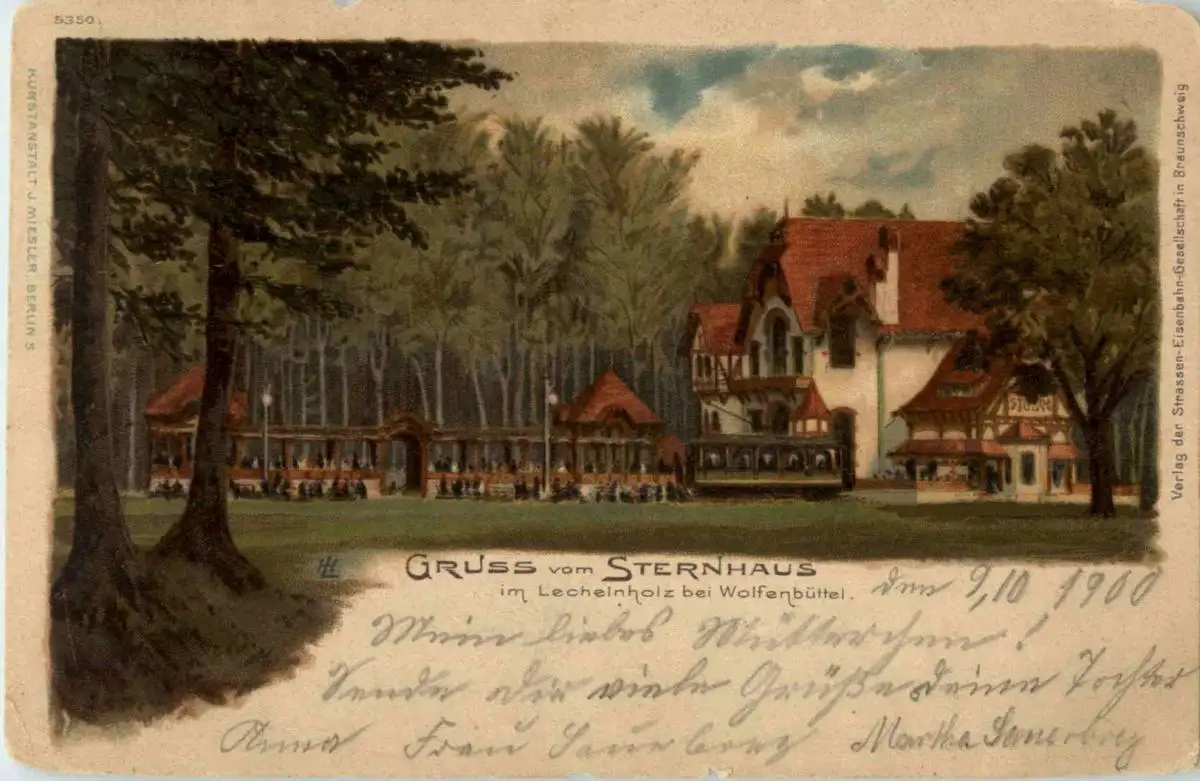 5350.
KUNSTANSTALT J. MIESLER, BERLIN S
Verlag der Strassen-Eisenbahn-Gesellschaft in Braunschweig
HL
GRUSS vom STERNHAUS
im Lechelnholz bei Wolfenbüttel.
den 9,10 1900
Mein liebes Mütterchen!
Sende dir viele Grüße deine Tochter
Anna Frau Sauerbrey Martha Sauerbrey